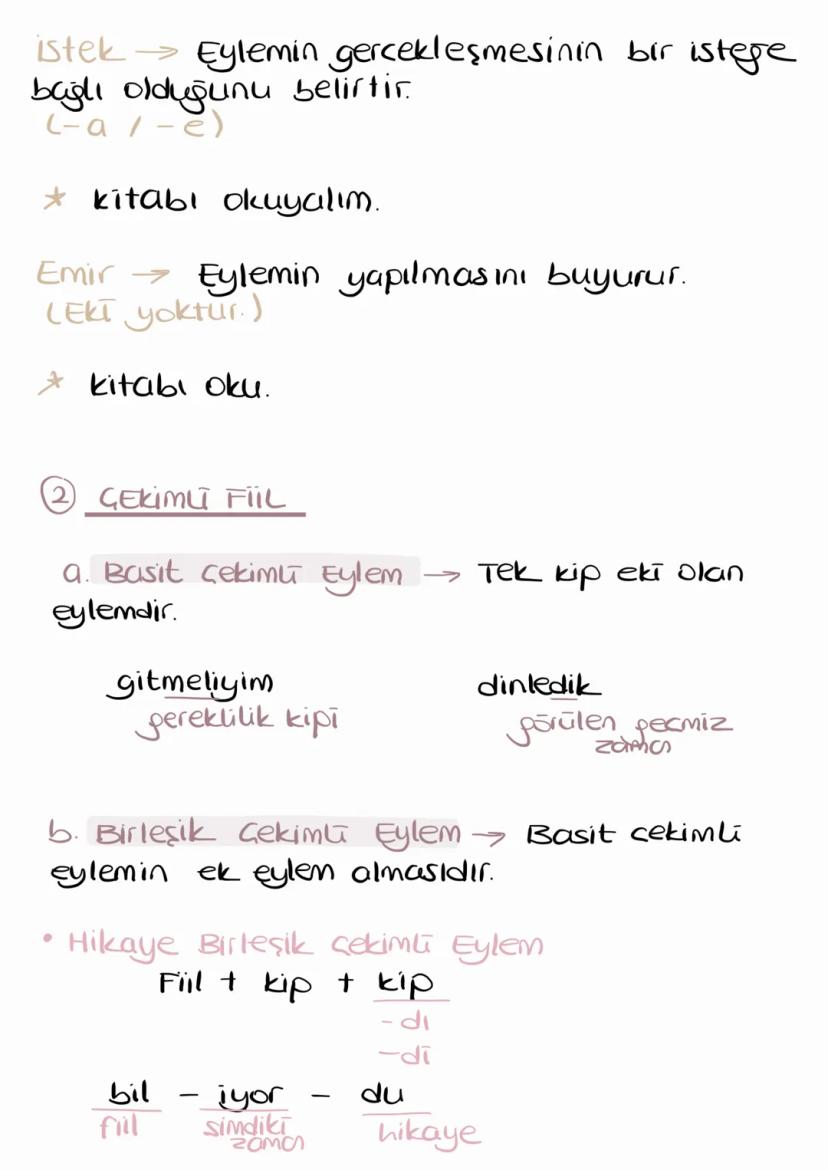 istek → Eylemin gerçekleşmesinin bir isteğe
bağlı olduğunu belirtir.
(-a / -e)
* kitabı okuyalım.
Emir → Eylemin yapılmasını buyurur.
(Eki yoktur.)
* kitabı oku.
2 ÇEKİMLİ FİİL
a. Basit Çekimli Eylem → Tek kip eki olan
eylemdir.
gitmeliyim dinledik
gereklilik kipi görülen geçmiz
zaman
b. Birleşik Çekimli Eylem → Basit çekimli
eylemin ek eylem almasıdır.
• Hikaye Birleşik Çekimli Eylem
Fiil + kip + kip
- dı
- di
bil - iyor - du
fiil şimdiki hikaye
zaman